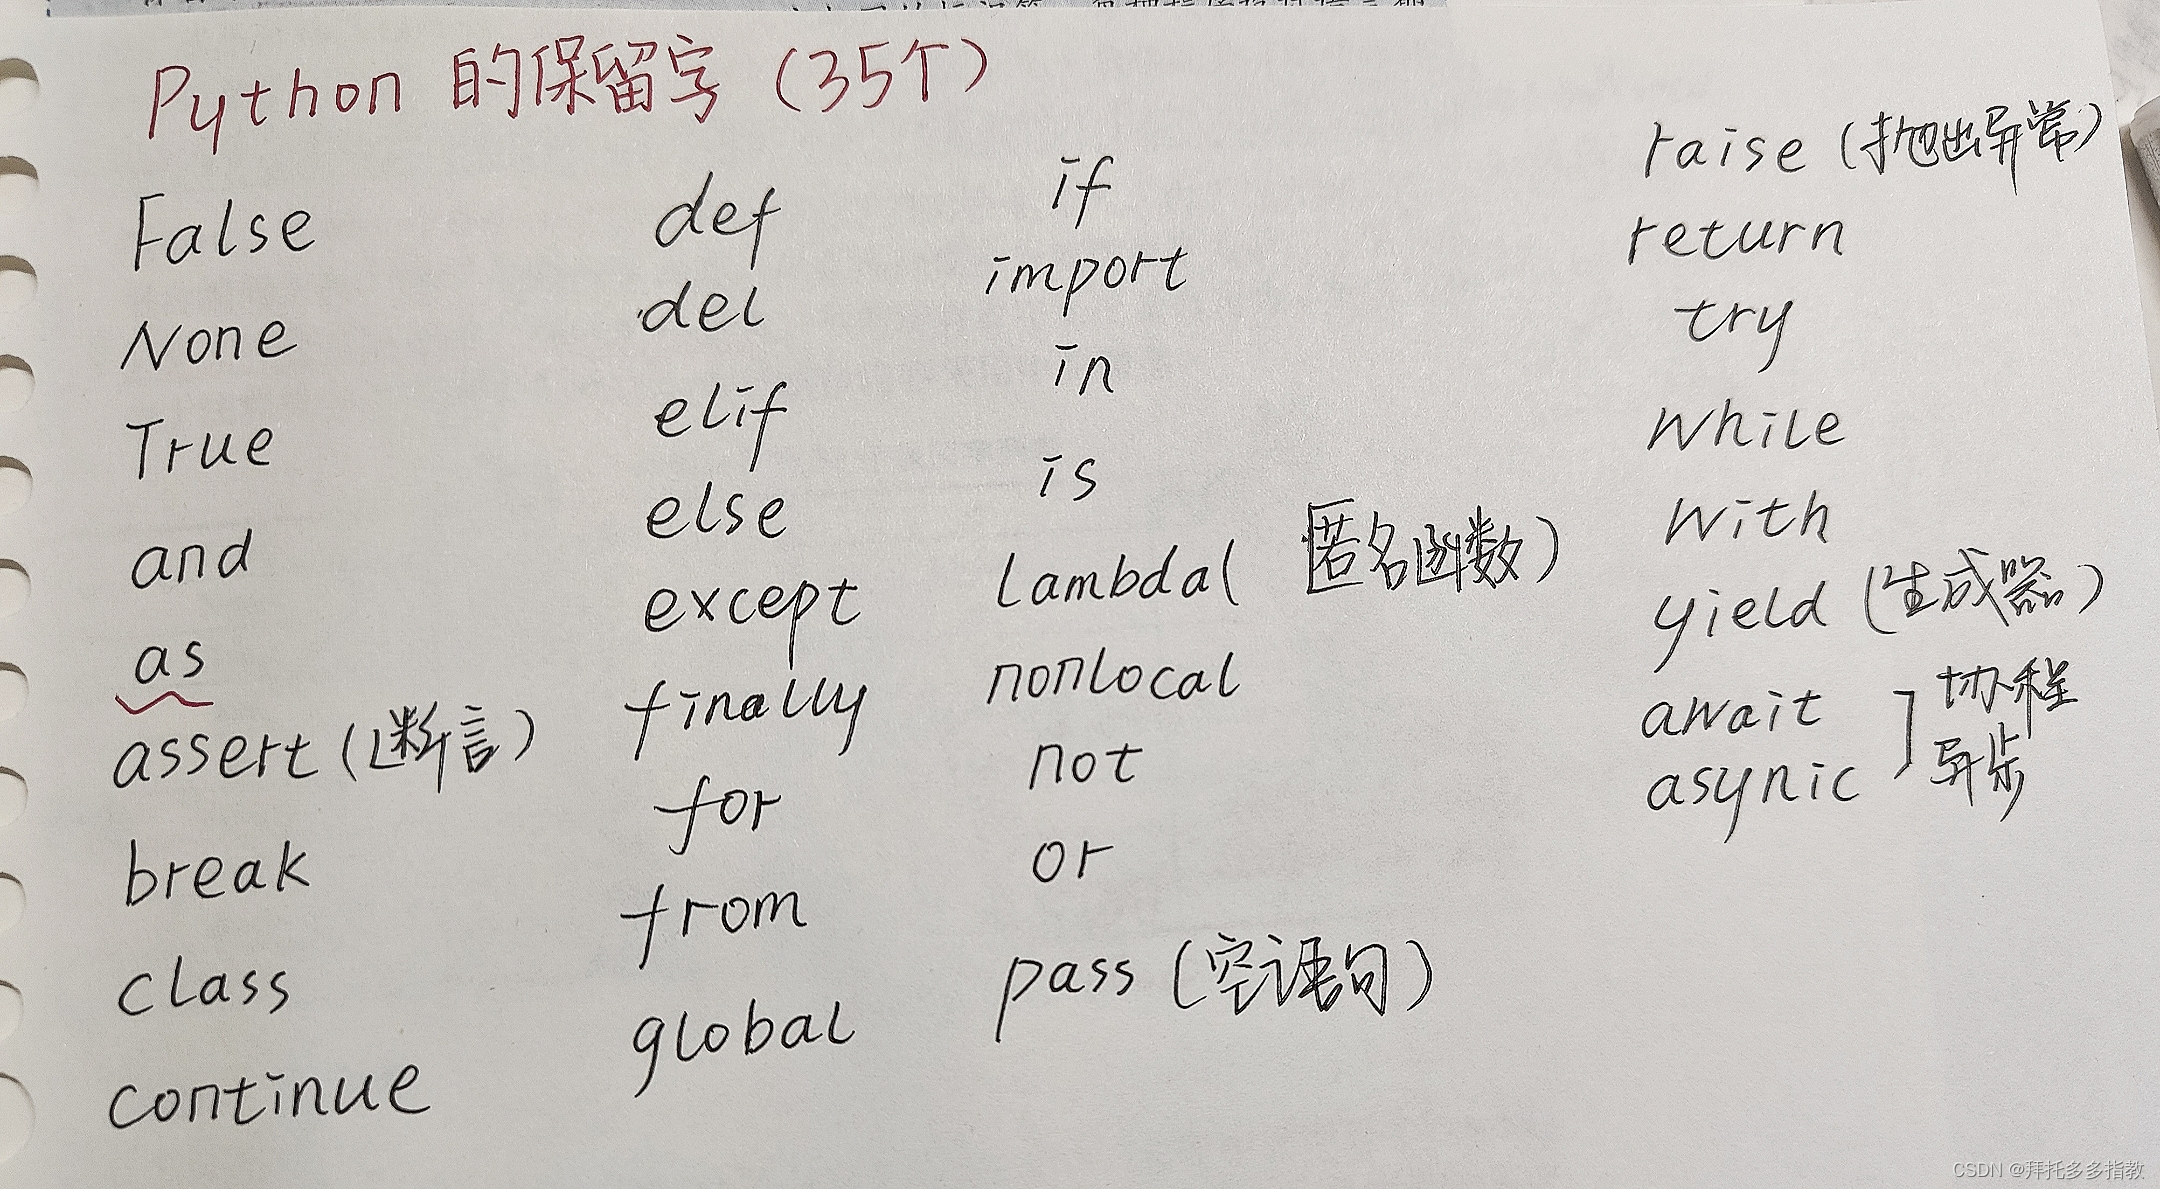 Python 的保留字（35个）
False
None
True
and
as
assert（断言）
break
class
continue
def
del
elif
else
except
finally
for
from
global
if
import
in
is
lambda( 匿名函数)
nonlocal
not
or
pass（空语句）
raise（抛出异常）
return
try
while
with
yield（生成器）
await ] 协程
asynic 异步
CSDN @拜托多多指教